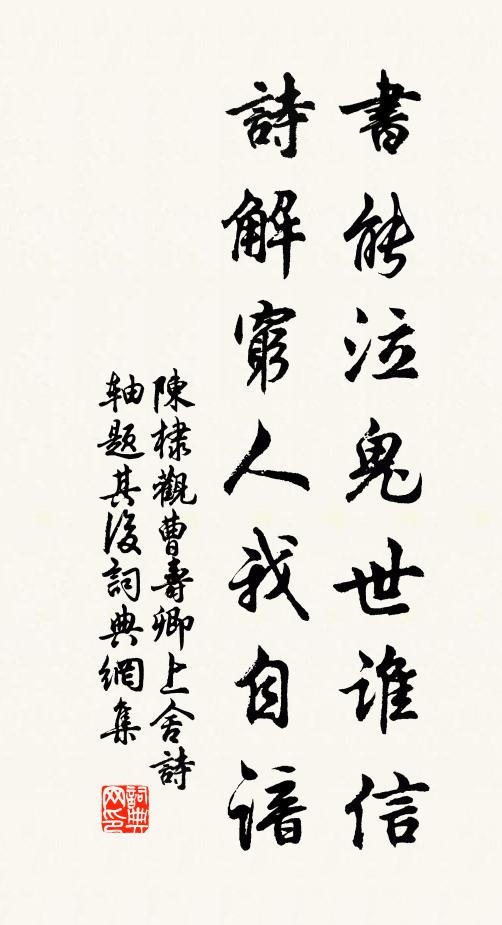 書能泣鬼世誰信
詩解窮人我自諳
陳棣觀曹壽卿上舍詩
軸題其後詞典網集